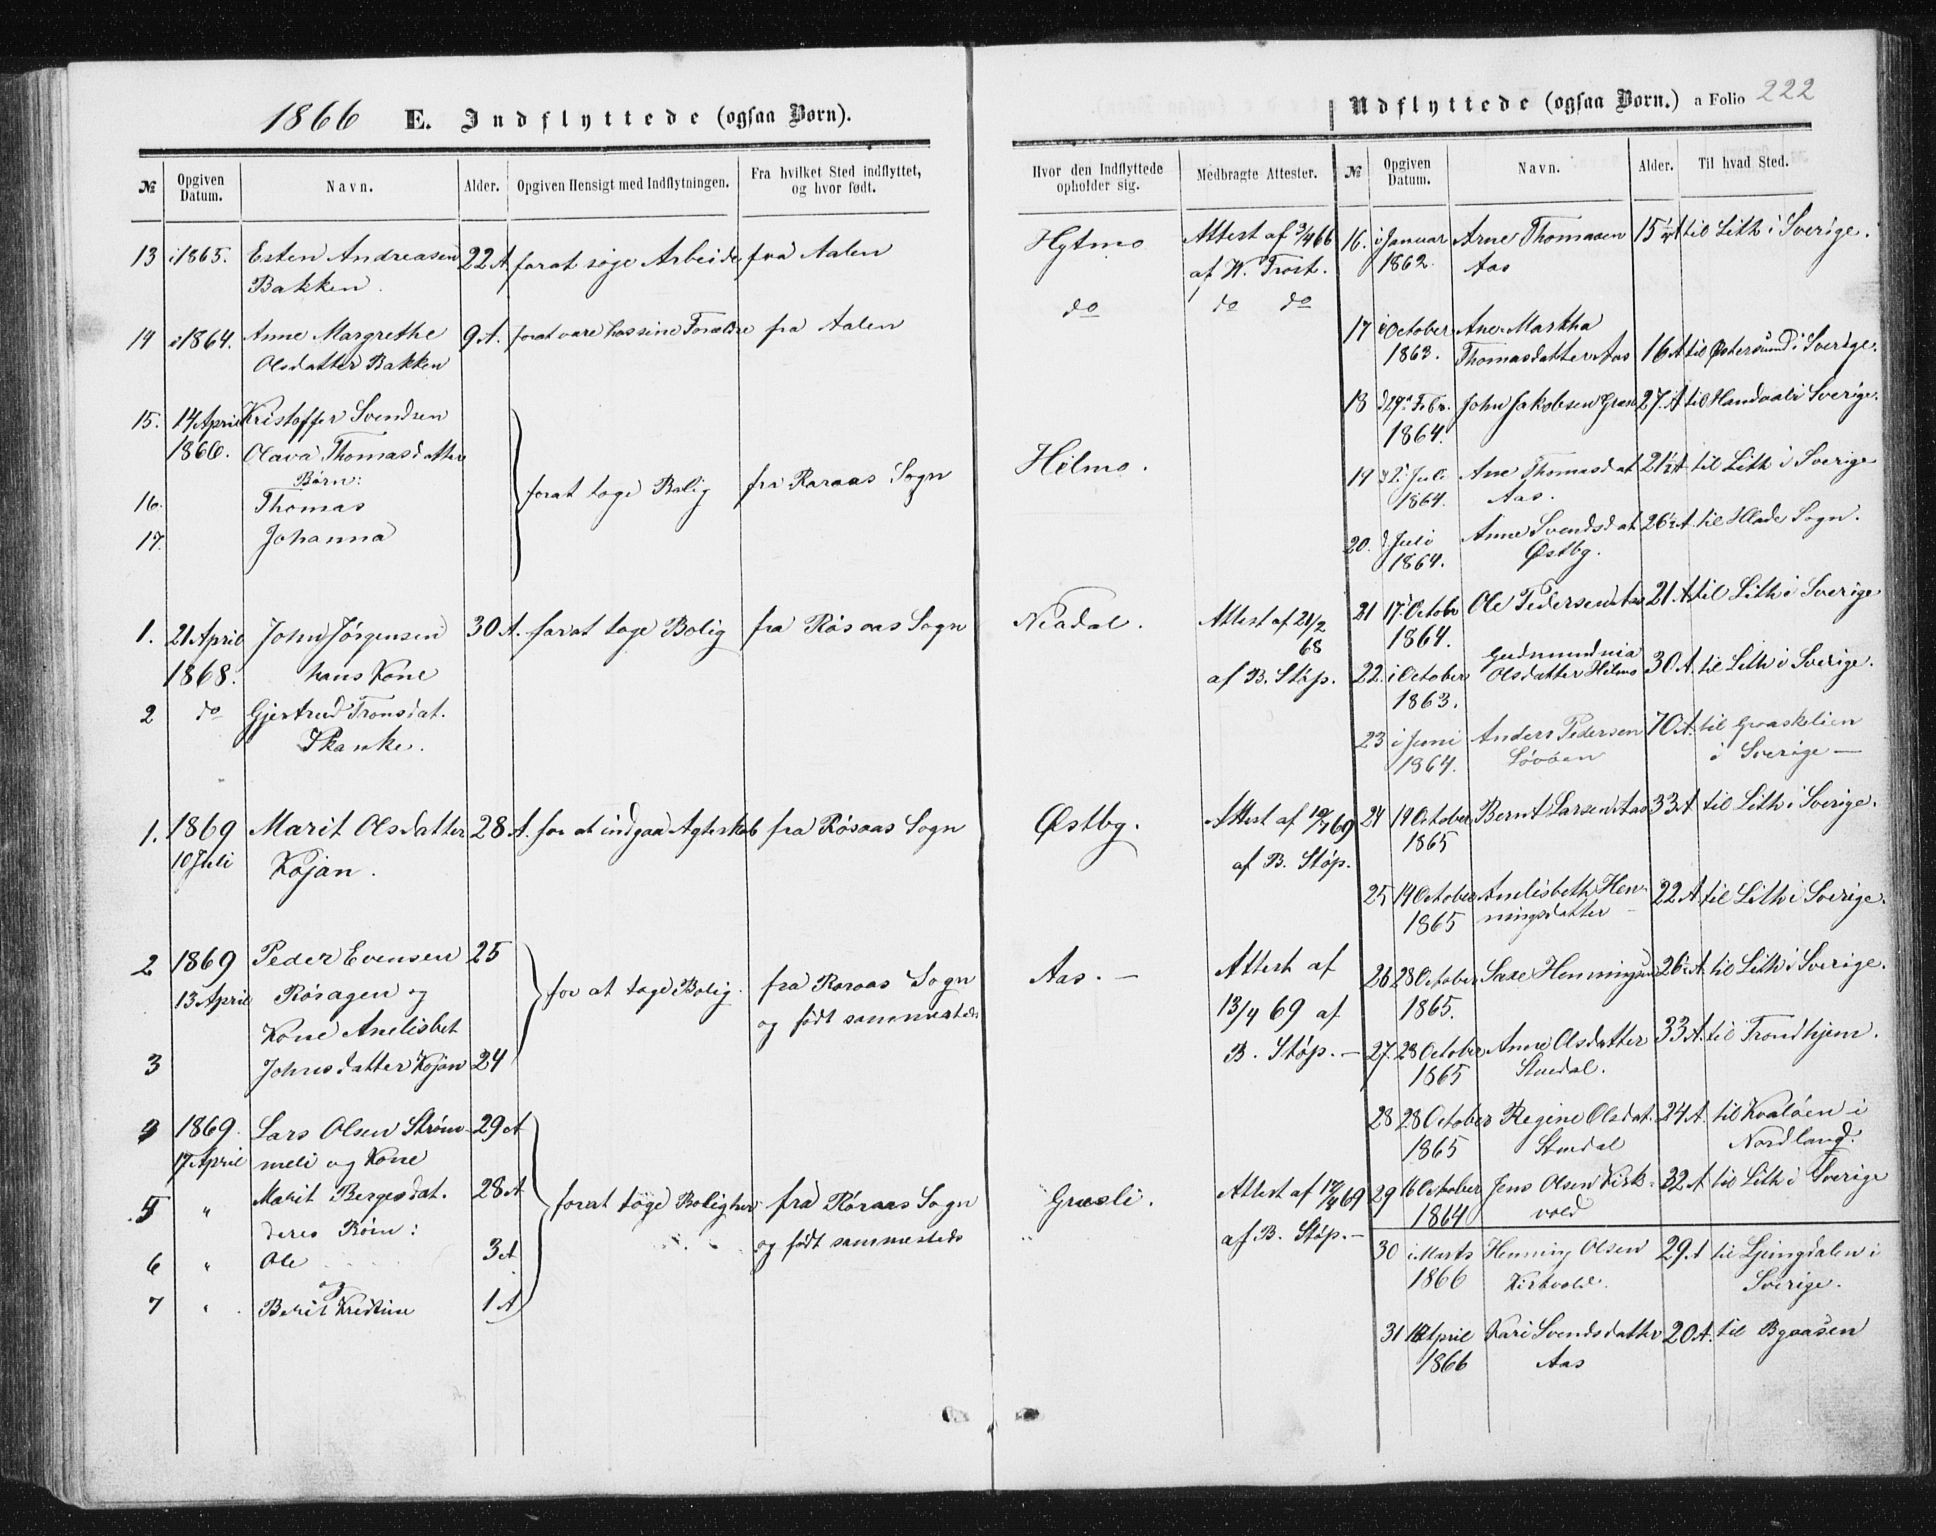 1866 E. Indflyttede (ogsaa Børn).
№ Opgiven Datum. Navn. Alder. Opgiven Hensigt med Indflytningen. Fra hvilket Sted indflyttet, og hvor født.
13 i 1865. Esten Andreasen 22 A. forat søge Arbeide fra Aalen
Bakken.
14 i 1864. Anne Margrethe 9 A. forat være hos sine Forældre fra Aalen
Olsdatter Bakken
15. 14 April Kristoffer Svendsen
1866. Olava Thomasdatter
Børn:
16. Thomas forat tage Bolig fra Røraas Sogn
17. Johanna
1. 21 April John Jørgensen 30 A. forat tage Bolig fra Røraas Sogn
1868. hans Kone
2 do Gjertrud Tronsdat.
Skanke.
1. 1869 Marit Olsdatter 28 A. for at indgaa Ægteskab fra Røraas Sogn
10 Juli Kojan.
2 1869 Peder Evensen 25
13 April Rösagen og for at tage Bolig. fra Røraas Sogn
Kone Anelisbet og født sammesteds
3 Johnsdatter Kojan 24
4 1869. Lars Olsen Strøm- 29 A
17 April meli og Kone
5 " Marit Bergesdat. 28 A forat tage Bolig her fra Røraas Sogn
deres Børn: og født sammesteds
6 " Ole 3 A
og
7 " Berit Kristine 1 A
Udflyttede (ogsaa Børn.) a Folio 222
Hvor den Indflyttede opholder sig. Medbragte Attester. № Opgiven Datum. Navn. Alder. Til hvad Sted.
Hytmo Attest af 3/4 66
af W. Trost.
do do do
Hilmo.
Neadal. Attest af 21/2
68
af B. Støp.
Østbg. Attest af 10/7 69
af B. Støp.
Aas. — Attest af
13/4 69 af
B. Støp. —
Græsli. Attest af 17/4 69
af B. Støp. —
16. i Januar Arne Thomasen 15 1/4 A til Lith i Sverige.
1862. Aas
17 i October Ane Martha
1863. Thomasdatter Aas 16 A til Østersund i Sverige.
18 d 29 Febr. John Jakobsen Græs 27 A til Handøal i Sverige.
1864.
19 Juli Ane Thomasdat 21 1/2 A til Lith i Sverige
1864. Aas.
20. d. Juli Anne Svendsdat 26 1/2 A. til Hlade Sogn.
1864. Østbg.
21 17 Octobr Ole Pedersen Aas 21 A til Lith i Sverige
1864.
Gudmundnia
22. i October Olsdatter Hilmo 30 A. til Lith i Sverige.
1863.
23 i Juni Anders Pedersen 70 A. til Graaskelien
1864. Lövöen i Sverige —
24 19 October Bernt Larsen Aas 33 A til Lith i Sverige.
1865
25 19 October Anelisbeth Hen- 22 A til Lith i Sverige.
1865 ningsdatter
26 28 October Saxe Henningsen 26 1/2 A. til Lith i Sverige.
1865.
27. 28 October Anne Olsdatter 33 A. til Trondhjem.
1865 Stuedal.
28 28 October Regine Olsdat. 24 A. til Kvaløen i
1865 Stuedal Nordland.
29 16 October Jens Olsen Kirk- 32 A til Lith i Sverige
1864 vold
30 i Marts Henning Olsen 29 A til Ljungdalen i
1866 Kirkvold. Sverige.
31 18 April Kari Svendsdatter 20 A. til Byaasen
1866 Aas